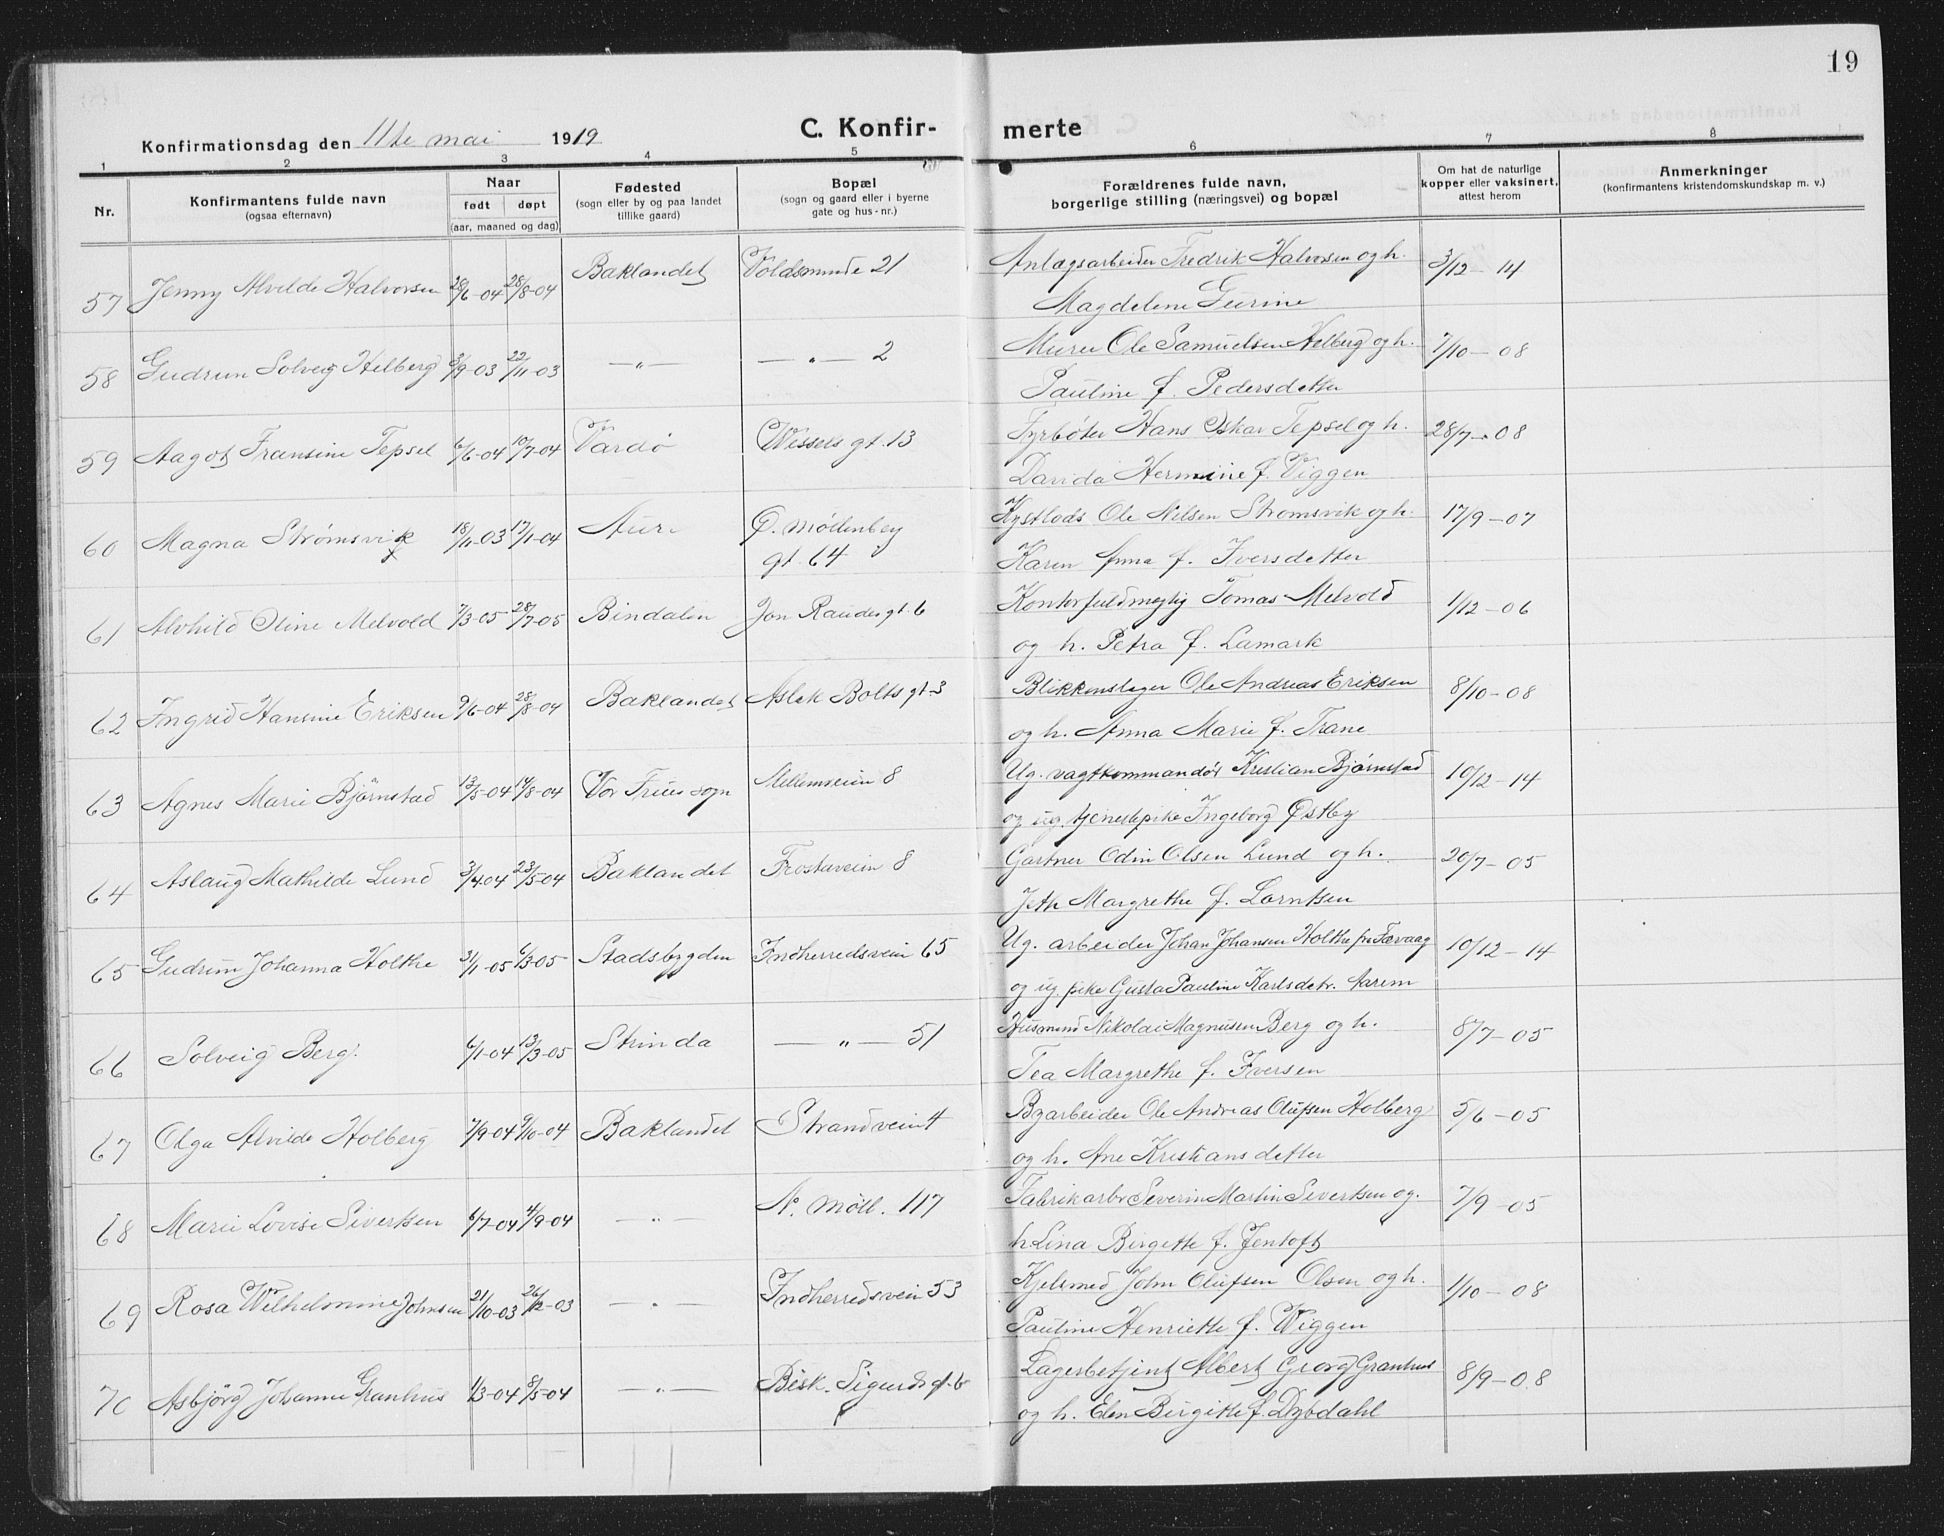 19
Konfirmationsdag den 11te mai 1919
C. Konfir- merte
1 2 3 4 5 6 7 8
Nr.
Konfirmantens fulde navn
(ogsaa efternavn)
Naar
født døpt
(aar, maaned og dag)
Fødested
(sogn eller by og paa landet
tillike gaard)
Bopæl
(sogn og gaard eller i byerne
gate og hus-nr.)
Forældrenes fulde navn,
borgerlige stilling (næringsvei) og bopæl
Om hat de naturlige
kopper eller vaksinert,
attest herom
Anmerkninger
(konfirmantens kristendomskundskap m. v.)
57 Jenny Alvilde Halvorsen 28/6-04 28/8-04 Baklandet Voldsminde 21 Anlægsarbeider Fredrik Halvorsen og h. 3/12-14
Magdelene Gurine
58 Gudrun Solveig Helberg 3/9-03 22/11-03 —„— —„— 2 Murer Ole Samuelsen Helberg og h. 7/10-08
Pauline f. Pedersdetter
59 Aagot Fransine Tepsel 6/6-04 10/7-04 Vardø Wessels gt. 13 Fyrbøter Hans Oskar Tepsel og h. 28/7-08
Davida Hermine f. Viggen
60 Magna Strømsvik 18/11-03 17/1-04 Aure Ø. Møllenberg Kystlods Ole Nilsen Strømsvik og h. 17/9-07
gt. 64 Karen Anna f. Iversdetter
61 Alvhild Oline Melvold 7/3-05 28/7-05 Bindalen Jon Raudes gt. 6 Kontorfuldmegtig Tomas Melvold 1/12-06
og h. Petra f. Lamark
62 Ingrid Hansine Eriksen 9/6-04 28/8-04 Baklandet Aslak Bolts gt. 3 Blikkenslager Ole Andreas Eriksen 8/10-08
og h. Anna Marie f. Trane
63 Agnes Marie Bjørnstad 13/5-04 14/8-04 Vor Frues sogn Mellemveien 8 Ug. vagtkommandør Kristian Bjørnstad 10/12-14
og ug. tjenestepike Ingeborg Østby
64 Aslaug Mathilde Lund 3/4-04 23/5-04 Baklandet Frostaveien 8 Gartner Odin Olsen Lund og h. 20/7-05
Margrethe f. Lorntsen
65 Gudrun Johanna Holthe 31/1-05 6/3-05 Stadsbygden Indherredsveien 65 Ug. arbeider Johan Johansen Holthe fra Fævaag 10/12-14
og ug. pike Gusta Pauline Karlsdetr. Aarem
66 Solveig Berg. 6/1-04 13/3-05 Strinda —„— 51 Husmand Nikolai Magnusen Berg og h. 8/7-05
Tea Margrethe f. Iversen
67 Olga Alvilde Holberg 7/9-04 9/10-04 Baklandet Strandveien 4 Byarbeider Ole Andreas Olufsen Holberg 5/6-05
og h. Ane Kristiansdetter
68 Marie Lovise Sivertsen 6/7-04 4/9-04 —„— N. Møll. 117 Fabrikarb. Severin Martin Sivertsen og. 7/9-05
h Lina Birgitte f. Jentoft
69 Rosa Wilhelmine Johnsen 21/10-03 26/12-03 —„— Indherredsveien 53 Kjelsmed John Olufsen Olsen og h. 1/10-08
Pauline Henriette f. Wiggen
70 Asbjørg Johanne Granhus 1/3-04 8/5-04 —„— Bisk. Sigurds gt. 6 Lagerbetjent Albert Georg Granhus 8/9-08
og h. Elen Birgitte f. Dybdahl